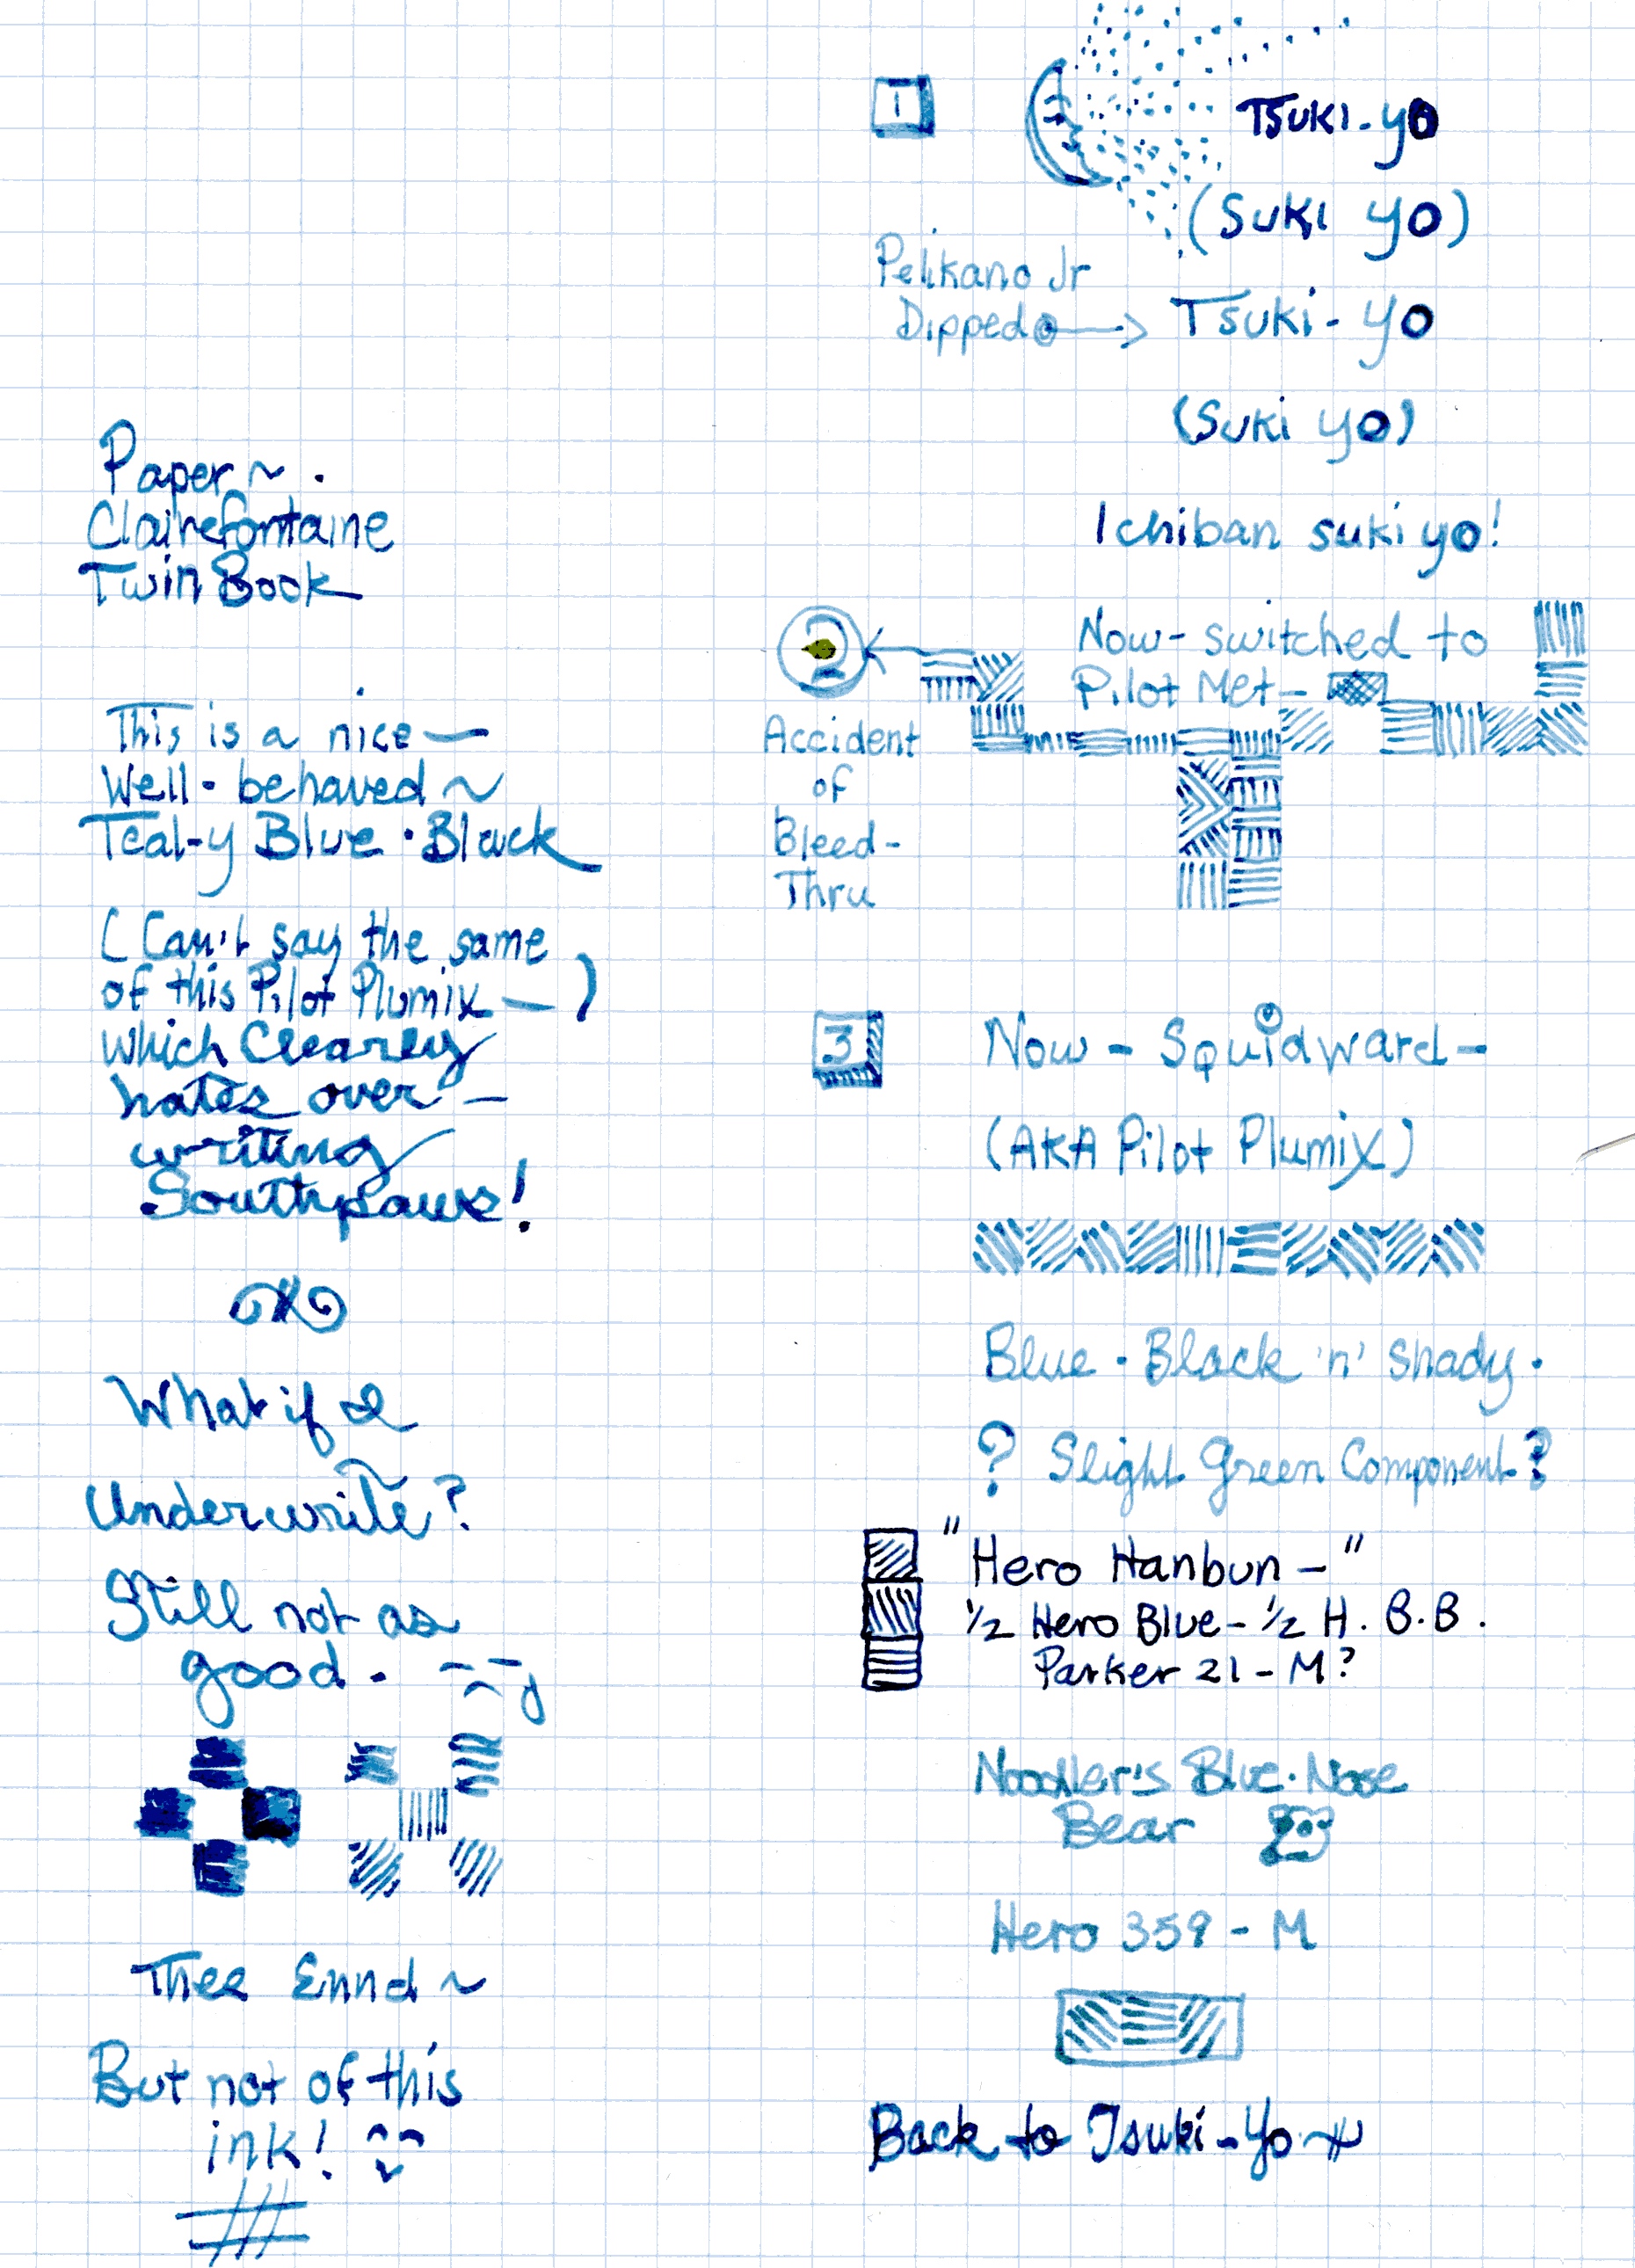 1
TSUKI-yo
(SUKI yo)
Pelikano Jr
Dipped → Tsuki-yo
(Suki yo)
Ichiban suki yo!
2
Now- switched to
Pilot Met-
Accident
of
Bleed-
Thru
3
Now - Squidward-
(AKA Pilot Plumix)
Blue·Black 'n' shady.
? Slight Green Component?
"Hero Hanbun-"
1/2 Hero Blue- 1/2 H. B.B.
Parker 21-M?
Noodler's Blue·Nose
Bear
Hero 359-M
Back to Tsuki-Yo
Paper~.
Clairefontaine
Twin Book
This is a nice—
Well-behaved~
Teal-y Blue·Black
(Can't say the same
of this Pilot Plumix—)
which Clearly
hates over-
writing
Southpaws!
What if I
Underwrite?
Still not as
good.
Thee Ennd~
But not of this
ink!